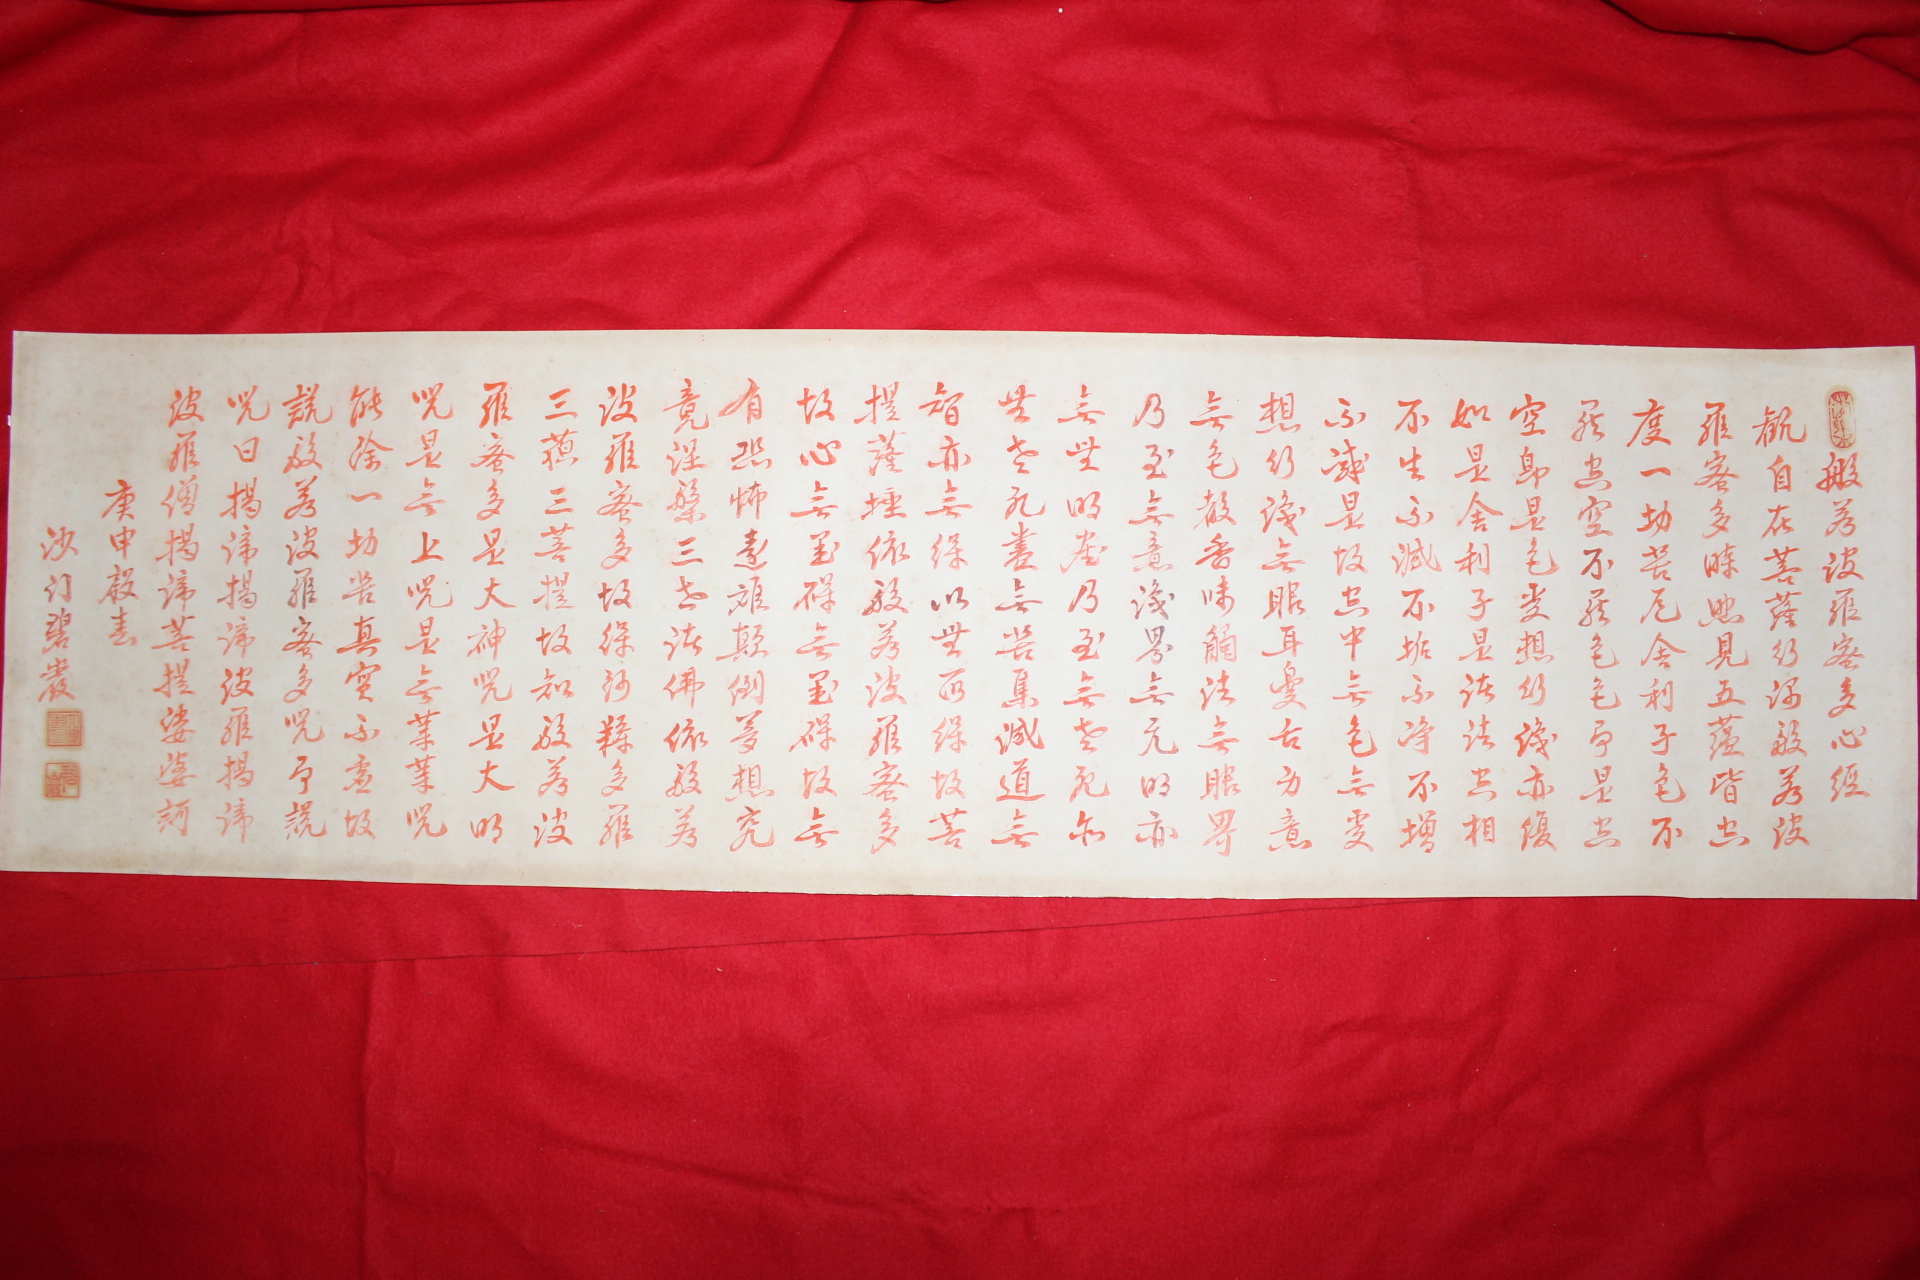 般若波羅蜜多心經
觀自在菩薩行深般若波
羅蜜多時照見五蘊皆空
度一切苦厄舍利子色不
異空空不異色色即是空
空即是色受想行識亦復
如是舍利子是諸法空相
不生不滅不垢不淨不增
不減是故空中無色無受
想行識無眼耳鼻舌身意
無色聲香味觸法無眼界
乃至無意識界無無明亦
無無明盡乃至無老死亦
無老死盡無苦集滅道無
智亦無得以無所得故菩
提薩埵依般若波羅蜜多
故心無罣礙無罣礙故無
有恐怖遠離顛倒夢想究
竟涅槃三世諸佛依般若
波羅蜜多故得阿耨多羅
三藐三菩提故知般若波
羅蜜多是大神咒是大明
咒是無上咒是無等等咒
能除一切苦真實不虛故
說般若波羅蜜多咒即說
咒曰揭諦揭諦波羅揭諦
波羅僧揭諦菩提娑婆訶
庚申殷春
沙門碧巖